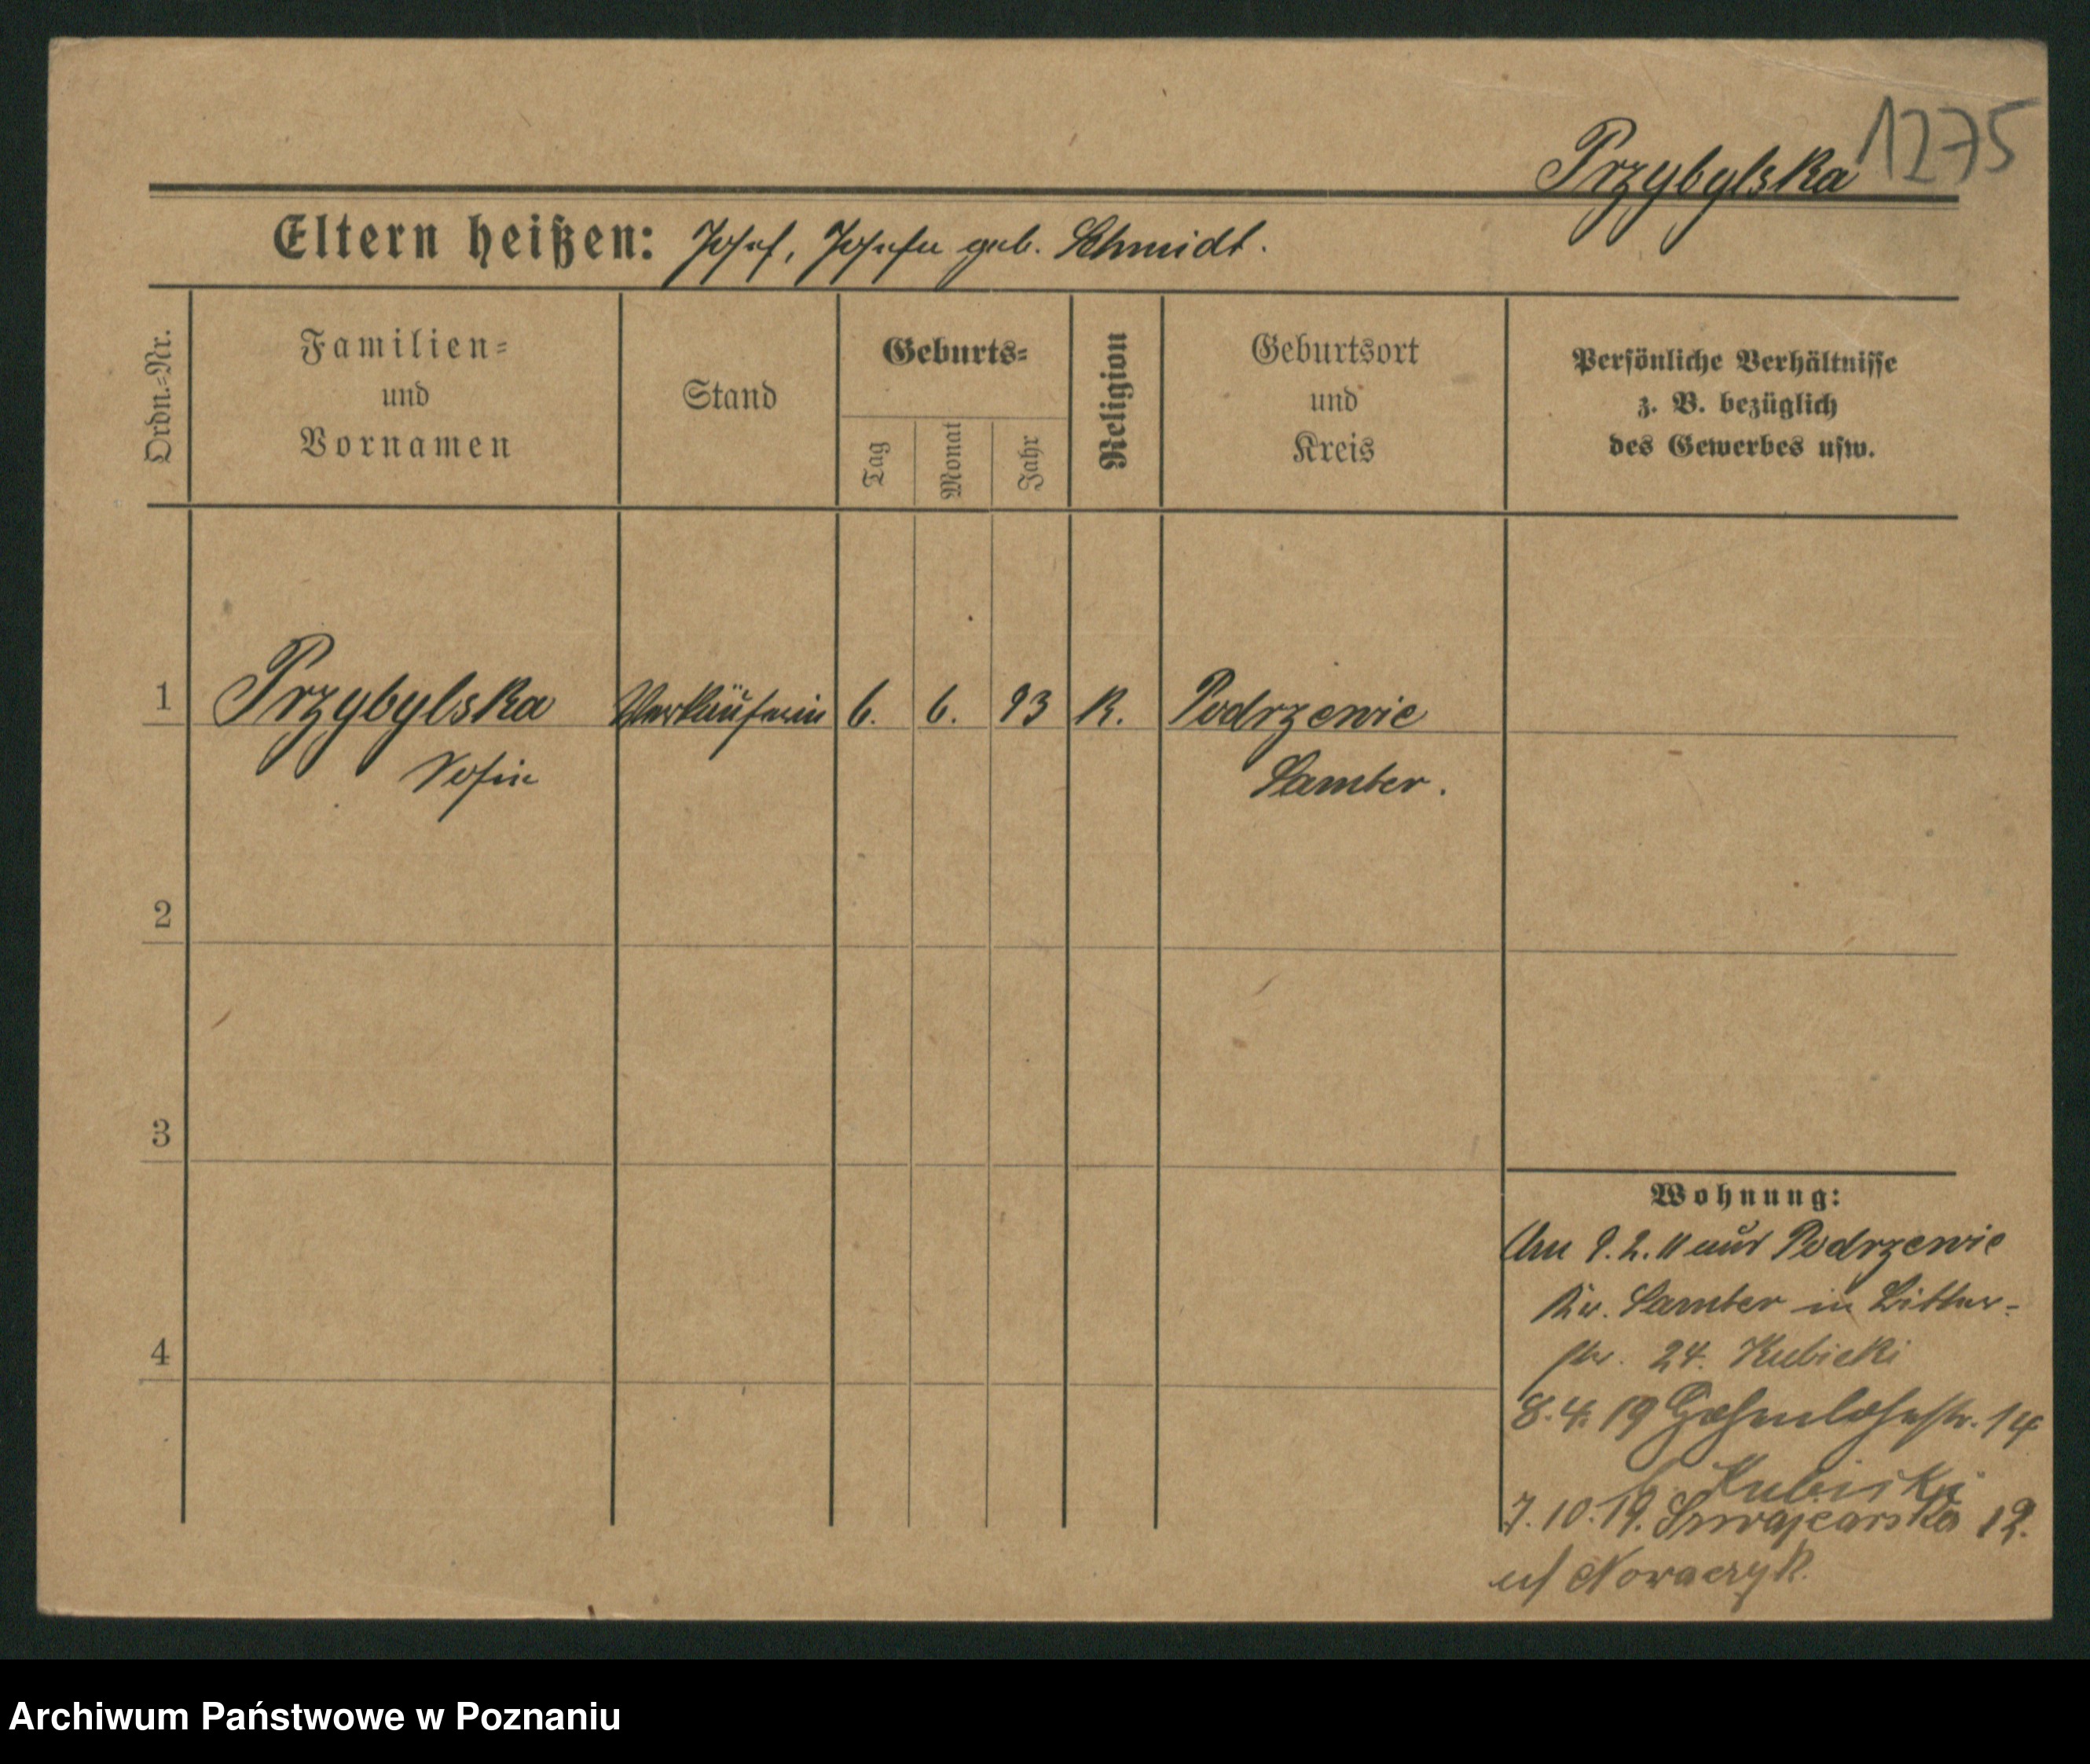 1275
Przybylska
Eltern heißen: Josef, Josefa geb. Schmidt.
Ordn.=Nr.
Familien=
und
Vornamen
Stand
Geburts=
Tag
Monat
Jahr
Religion
Geburtsort
und
Kreis
Persönliche Verhältnisse
z. B. bezüglich
des Gewerbes usw.
1 Przybylska Verkäuferin 6. 6. 93 K. Podrzewie
Sofie Samter.
2
3
4
Wohnung:
Am 9.2.11 aus Podrzewie
Kr. Samter in Bitter=
str. 24. Kubicki
8.4.19 Hohenlohestr. 14
Kubicki
7.10.19. Szwajcarska 12.
Nowaczyk.
Archiwum Państwowe w Poznaniu